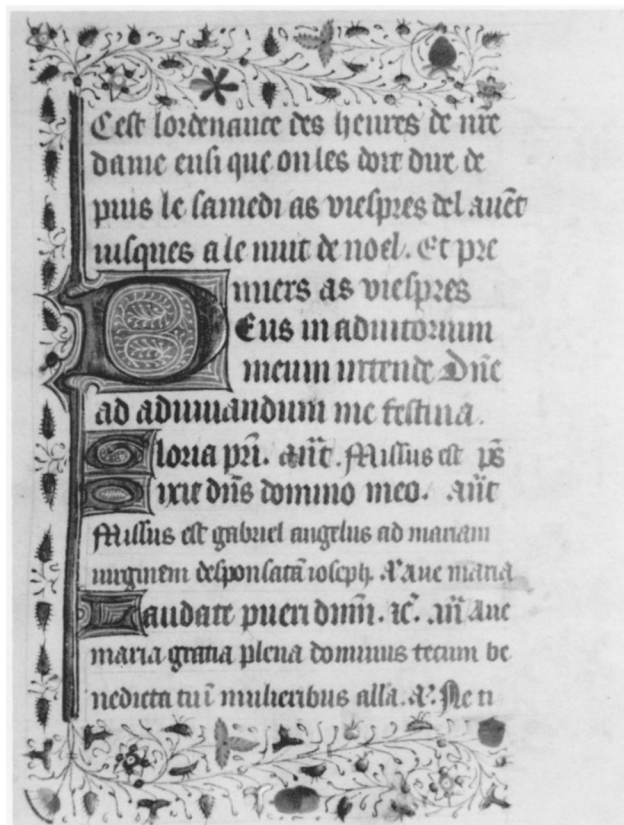 Cest lordenance des heures de nr̄e
dame ensi que on les doit dire de
puis le samedi as viespres del auēt
iusques a le nuit de noel. Et pre
miers as viespres
Deus in adiutorium
meum intende Dn̄e
ad adiuuandum me festina.
Gloria pr̄i. an̄t. Missus est ps̄
Dixit dn̄s domino meo. an̄t
Missus est gabriel angelus ad mariam
uirginem desponsatā ioseph. a᷒ Aue maria
Laudate pueri dn̄m. ⁊c̄. an̄ Aue
maria gratia plena dominus tecum be
nedicta tu ī mulieribus alla. a᷒. Ne ti